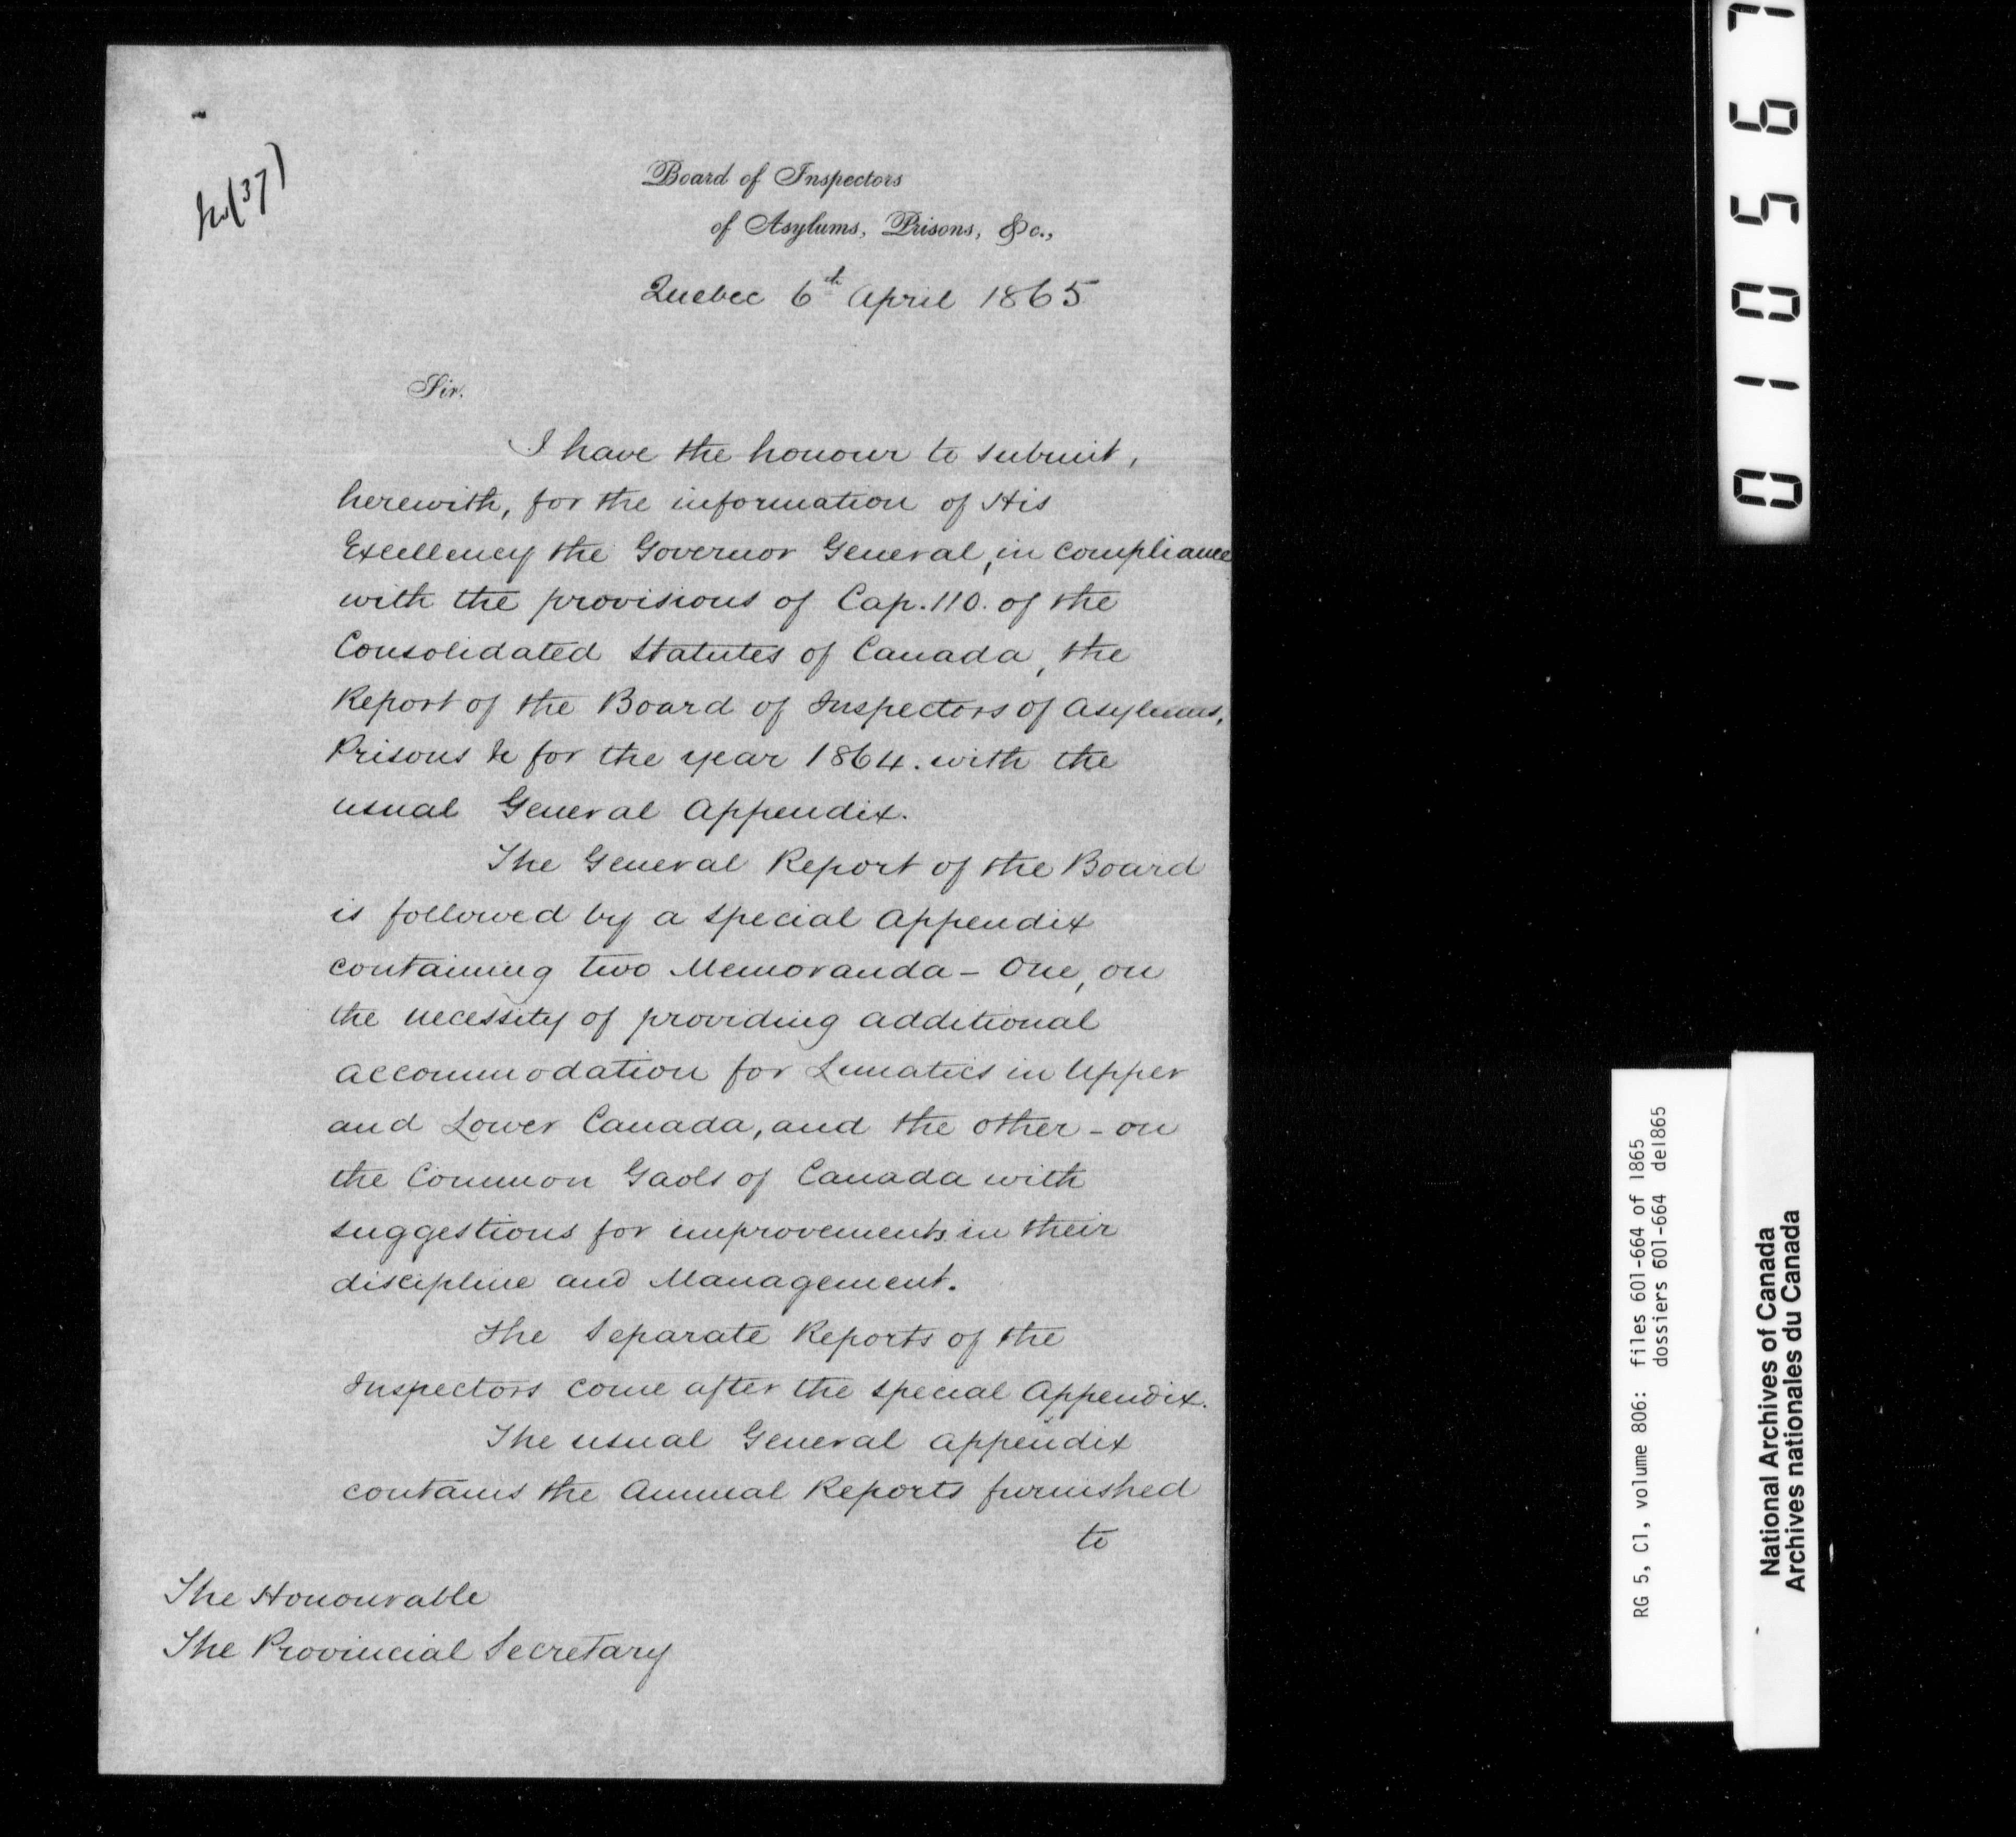 No (37)
Board of Inspectors
of Asylums, Prisons, &c.,
Quebec 6th April 1865
Sir.
I have the honour to submit,
herewith, for the information of His
Excellency the Governor General, in compliance
with the provisions of Cap. 110. of the
Consolidated Statutes of Canada, the
Report of the Board of Inspectors of Asylums,
Prisons &c for the year 1864. with the
usual General Appendix.
The General Report of the Board
is followed by a special Appendix
containing two Memoranda - One, on
the necessity of providing additional
accommodation for Lunatics in Upper
and Lower Canada, and the other - on
the Common Gaols of Canada with
suggestions for improvements in their
discipline and Management.
The Separate Reports of the
Inspectors come after the special Appendix.
The usual General Appendix
contains the Annual Reports furnished
to
The Honourable
The Provincial Secretary
010567
RG 5, C1, volume 806: files 601-664 of 1865
dossiers 601-664 de1865
National Archives of Canada
Archives nationales du Canada